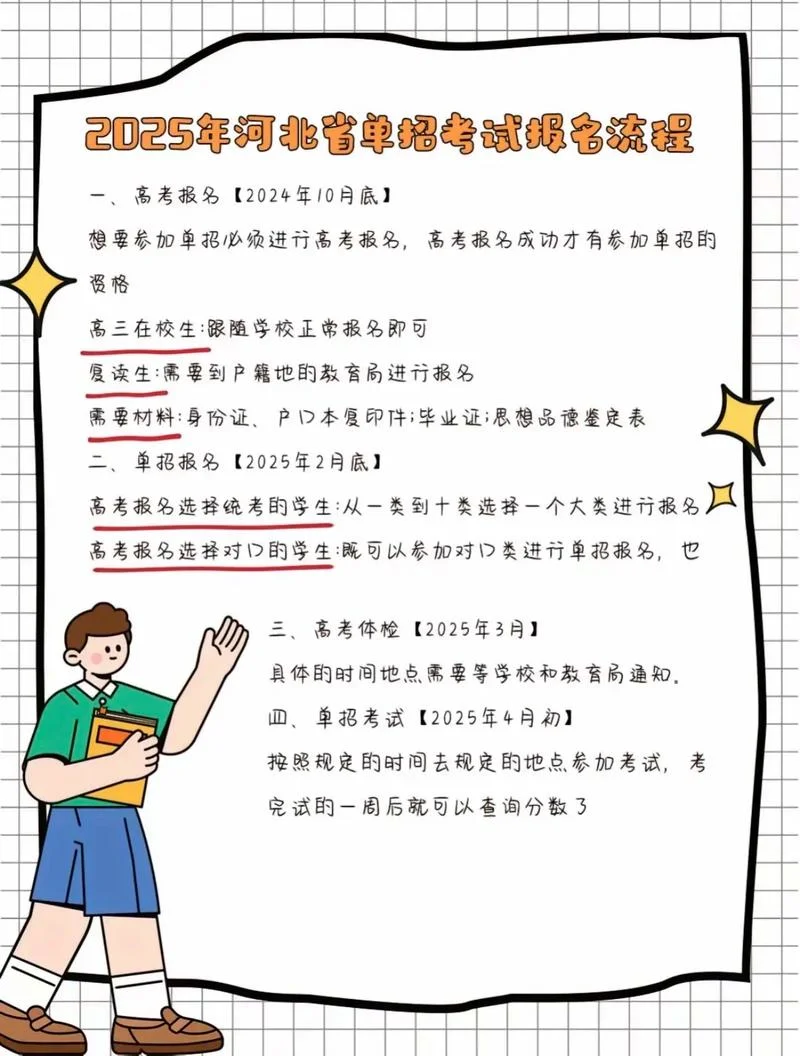 2025年河北省单招考试报名流程
一、高考报名【2024年10月底】
想要参加单招必须进行高考报名，高考报名成功才有参加单招的
资格
高三在校生:跟随学校正常报名即可
复读生:需要到户籍地的教育局进行报名
需要材料:身份证、户口本复印件;毕业证;思想品德鉴定表
二、单招报名【2025年2月底】
高考报名选择统考的学生:从一类到十类选择一个大类进行报名
高考报名选择对口的学生:既可以参加对口类进行单招报名，也
三、高考体检【2025年3月】
具体的时间地点需要等学校和教育局通知。
四、单招考试【2025年4月初】
按照规定的时间去规定的地点参加考试，考
完试的一周后就可以查询分数了